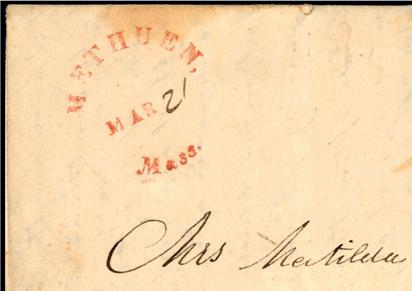 METHUEN,
MAR 21
Mass.
Mrs Matilda